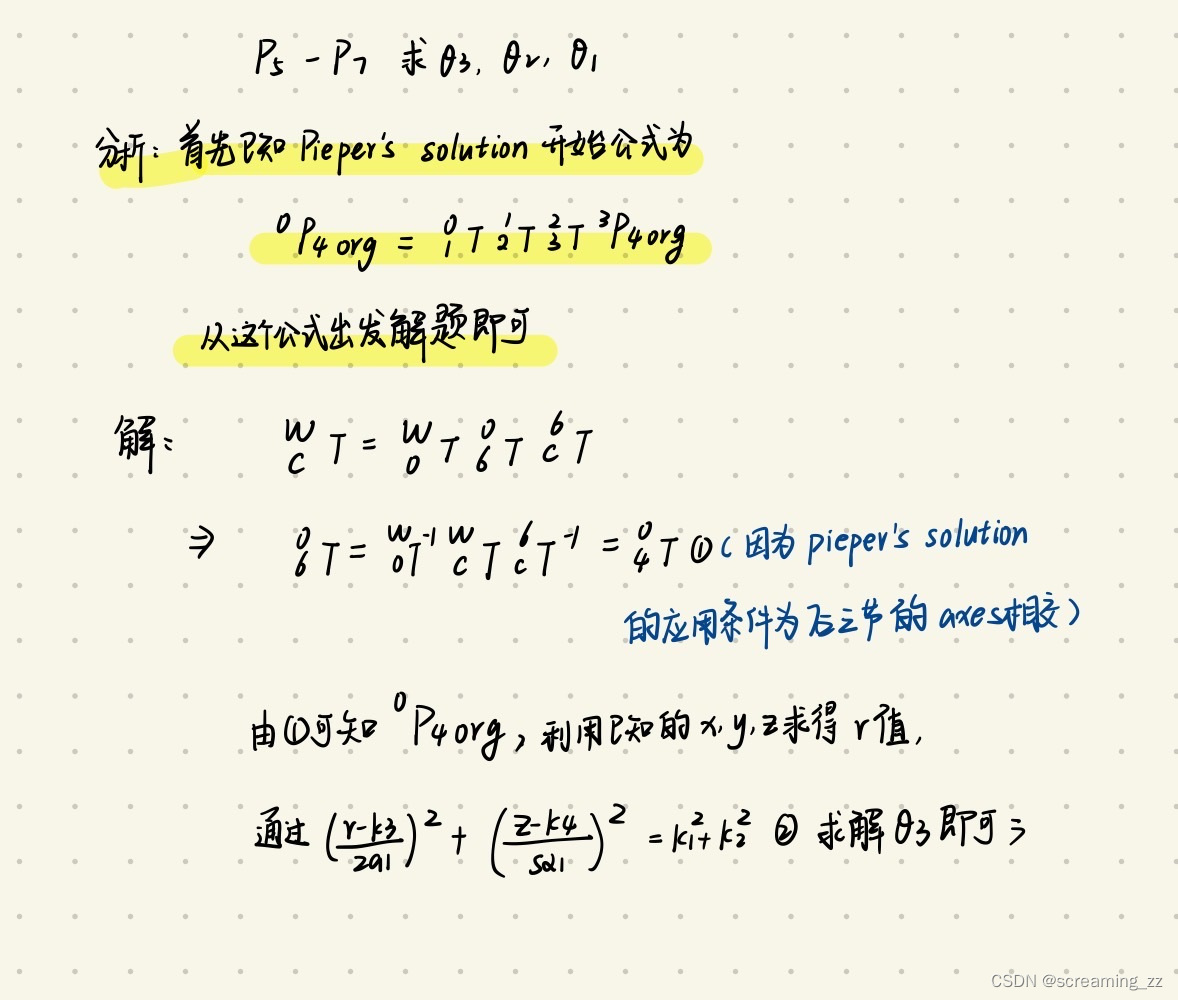 P5 - P7 求 θ3, θ2, θ1
分析: 首先已知 Pieper's solution 开始公式为
⁰P4 org = ⁰₁T ¹₂T ²₃T ³P4 org
从这个公式出发解题即可
解: ᵂ_C T = ᵂ_0 T ⁰₆T ⁶_C T
⇒ ⁰₆T = ᵂ_0 T⁻¹ ᵂ_C T ⁶_C T⁻¹ = ⁰₄T ① (因为 pieper's solution
的应用条件为后三节的 axes相交)
由①可知 ⁰P4 org, 利用已知的 x, y, z求得 r值,
通过 ((r-k3)/(2a1))² + ((z-k4)/(sα1))² = k1² + k2² ② 求解 θ3 即可 ;
CSDN @screaming_zz